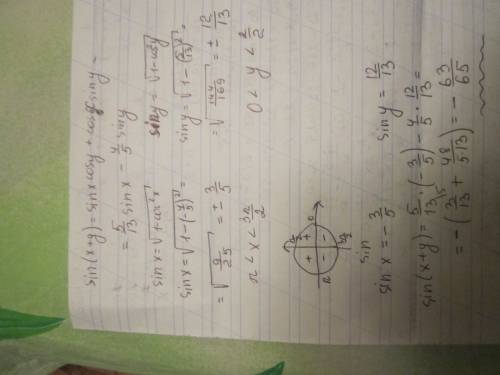 sin(x+y) = sinx cosy + cosx siny =
= 5/13 sinx - 4/5 siny
sinx = √(1+cos²x)    siny = √(1-cosy)
sinx = √(1-(-4/5)²)    siny = √(1-(5/13)²) =
= √(9/25) = ± 3/5    = √(144/169) = ± 12/13
π < x < 3π/2    0 < y < π/2
π/2
+ +
π 0
- -
3π/2
sin
sinx = -3/5    siny = 12/13
sin(x+y) = 5/13 · (-3/5) - 4/5 · 12/13 =
= -(3/13 + 48/5·13) = -63/65